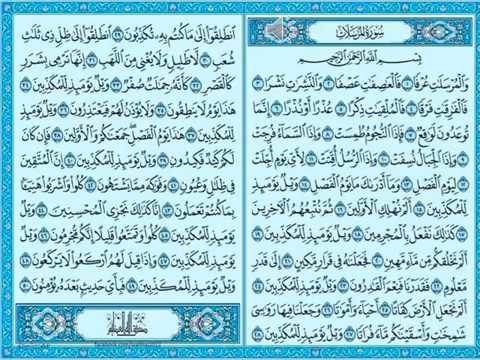 سُورَةُ الْمُرْسَلَاتِ
بِسْمِ اللَّهِ الرَّحْمَٰنِ الرَّحِيمِ
وَالْمُرْسَلَٰتِ عُرْفًا ١ فَالْعَٰصِفَٰتِ عَصْفًا ٢ وَالنَّٰشِرَٰتِ نَشْرًا ٣
فَالْفَٰرِقَٰتِ فَرْقًا ٤ فَالْمُلْقِيَٰتِ ذِكْرًا ٥ عُذْرًا أَوْ نُذْرًا ٦ إِنَّمَا
تُوعَدُونَ لَوَٰقِعٌ ٧ فَإِذَا النُّجُومُ طُمِسَتْ ٨ وَإِذَا السَّمَآءُ فُرِجَتْ
٩ وَإِذَا الْجِبَالُ نُسِفَتْ ١٠ وَإِذَا الرُّسُلُ أُقِّتَتْ ١١ لِأَيِّ يَوْمٍ أُجِّلَتْ
١٢ لِيَوْمِ الْفَصْلِ ١٣ وَمَآ أَدْرَىٰكَ مَا يَوْمُ الْفَصْلِ ١٤ وَيْلٌ يَوْمَئِذٍ
لِّلْمُكَذِّبِينَ ١٥ أَلَمْ نُهْلِكِ الْأَوَّلِينَ ١٦ ثُمَّ نُتْبِعُهُمُ الْءَاخِرِينَ
١٧ كَذَٰلِكَ نَفْعَلُ بِالْمُجْرِمِينَ ١٨ وَيْلٌ يَوْمَئِذٍ لِّلْمُكَذِّبِينَ ١٩
أَلَمْ نَخْلُقكُّم مِّن مَّآءٍ مَّهِينٍ ٢٠ فَجَعَلْنَٰهُ فِى قَرَارٍ مَّكِينٍ ٢١ إِلَىٰ قَدَرٍ
مَّعْلُومٍ ٢٢ فَقَدَرْنَا فَنِعْمَ الْقَٰدِرُونَ ٢٣ وَيْلٌ يَوْمَئِذٍ لِّلْمُكَذِّبِينَ ٢٤
أَلَمْ نَجْعَلِ الْأَرْضَ كِفَاتًا ٢٥ أَحْيَآءً وَأَمْوَٰتًا ٢٦ وَجَعَلْنَا فِيهَا رَوَٰسِىَ
شَٰمِخَٰتٍ وَأَسْقَيْنَٰكُم مَّآءً فُرَاتًا ٢٧ وَيْلٌ يَوْمَئِذٍ لِّلْمُكَذِّبِينَ ٢٨
انطَلِقُوٓا إِلَىٰ مَا كُنتُم بِهِۦ تُكَذِّبُونَ ٢٩ انطَلِقُوٓا إِلَىٰ ظِلٍّ ذِى ثَلَٰثِ
شُعَبٍ ٣٠ لَّا ظَلِيلٍ وَلَا يُغْنِى مِنَ اللَّهَبِ ٣١ إِنَّهَا تَرْمِى بِشَرَرٍ
كَالْقَصْرِ ٣٢ كَأَنَّهُۥ جِمَٰلَتٌ صُفْرٌ ٣٣ وَيْلٌ يَوْمَئِذٍ لِّلْمُكَذِّبِينَ ٣٤
هَٰذَا يَوْمُ لَا يَنطِقُونَ ٣٥ وَلَا يُؤْذَنُ لَهُمْ فَيَعْتَذِرُونَ ٣٦ وَيْلٌ يَوْمَئِذٍ
لِّلْمُكَذِّبِينَ ٣٧ هَٰذَا يَوْمُ الْفَصْلِ جَمَعْنَٰكُمْ وَالْأَوَّلِينَ ٣٨ فَإِن كَانَ
لَكُمْ كَيْدٌ فَكِيدُونِ ٣٩ وَيْلٌ يَوْمَئِذٍ لِّلْمُكَذِّبِينَ ٤٠ إِنَّ الْمُتَّقِينَ
فِى ظِلَٰلٍ وَعُيُونٍ ٤١ وَفَوَٰكِهَ مِمَّا يَشْتَهُونَ ٤٢ كُلُوا وَاشْرَبُوا هَنِيٓـًٔا
بِمَا كُنتُمْ تَعْمَلُونَ ٤٣ إِنَّا كَذَٰلِكَ نَجْزِى الْمُحْسِنِينَ ٤٤ وَيْلٌ
يَوْمَئِذٍ لِّلْمُكَذِّبِينَ ٤٥ كُلُوا وَتَمَتَّعُوا قَلِيلًا إِنَّكُم مُّجْرِمُونَ ٤٦ وَيْلٌ
يَوْمَئِذٍ لِّلْمُكَذِّبِينَ ٤٧ وَإِذَا قِيلَ لَهُمُ ارْكَعُوا لَا يَرْكَعُونَ ٤٨
وَيْلٌ يَوْمَئِذٍ لِّلْمُكَذِّبِينَ ٤٩ فَبِأَىِّ حَدِيثٍۭ بَعْدَهُۥ يُؤْمِنُونَ ٥٠